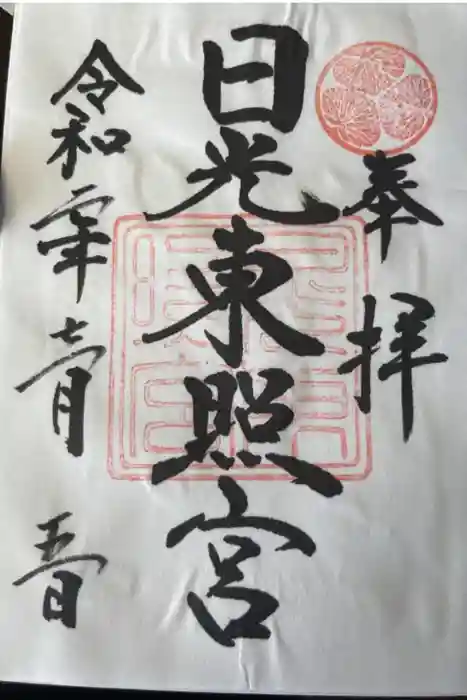 奉拝
日光東照宮
令和 年 月 五日